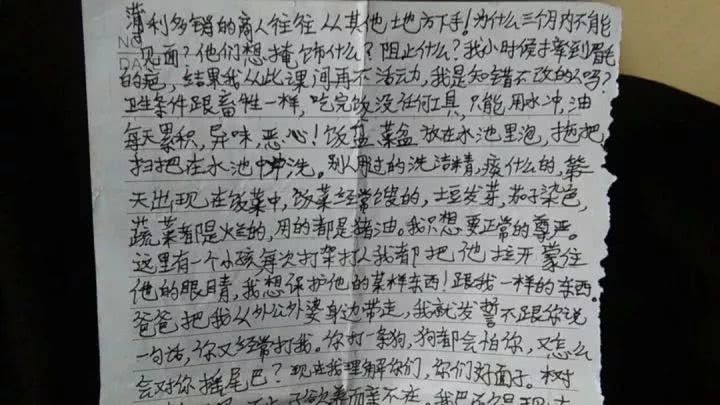 薄利多销的商人往往从其他地方下手!为什么三个月内不能
见面?他们想掩饰什么?阻止什么?我小时候才牵到眉毛
的疤,结果我从此课间再不活动,我是知错不改的人吗?
卫生条件跟畜牲一样,吃完饭没任何工具,只能用水冲,油
每天累积,异味,恶心!饭盆菜盆放在水池里泡,拖把,
扫把在水池中冲洗。别人用过的洗洁精,痰什么的,第
天出现在饭菜中,饭菜经常馊的,土豆发芽,茄子染色,
蔬菜都是烂的,用的都是猪油。我只想要正常的尊严。
这里有一个小孩每次打架打人我都把他拉开蒙住
他的眼睛,我想保护他的某样东西!跟我一样的东西。
爸爸把我从外公外婆身边带走,我就发誓不跟你说
一句话,你又经常打我。你打一条狗,狗都会怕你,又怎么
会对你摇尾巴?现在我理解你们,你们好面子。树
子欲养而亲不在。
NO
DA